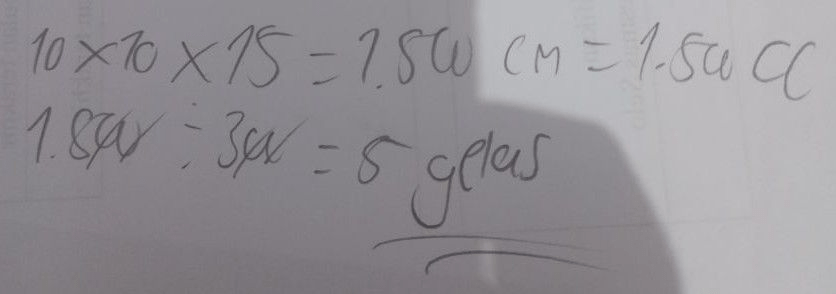 10 × 10 × 15 = 1.500 cm = 1.500 CC
1.500 ÷ 300 = 5 gelas